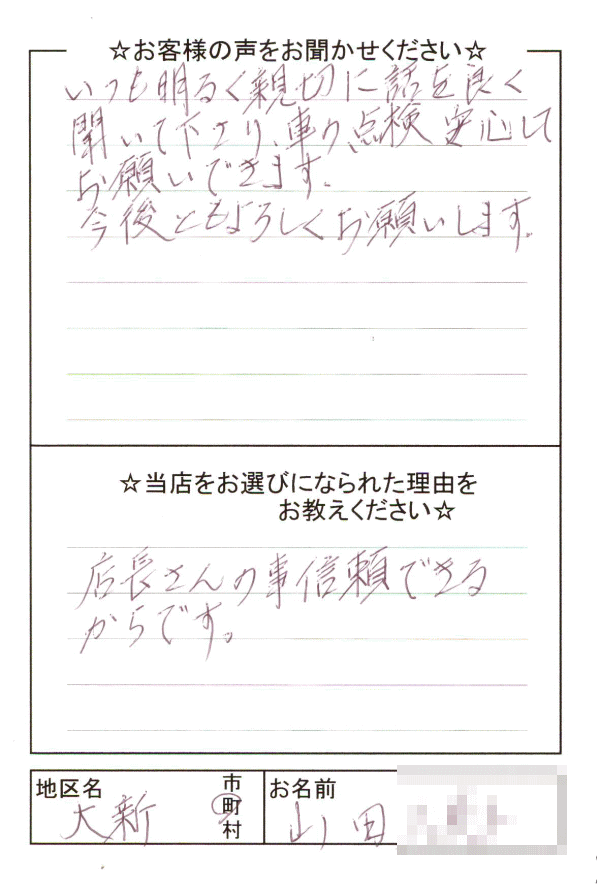 ☆お客様の声をお聞かせください☆
いつも明るく親切に話を良く
聞いて下さり、車の点検安心して
お願いできます。
今後ともよろしくお願いします。
☆当店をお選びになられた理由を
お教えください☆
店長さんの事信頼できる
からです。
地区名
大新
市
町
村
お名前
山田